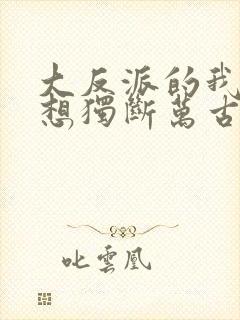 大反派的我
想獨斷萬古
叱雲凰